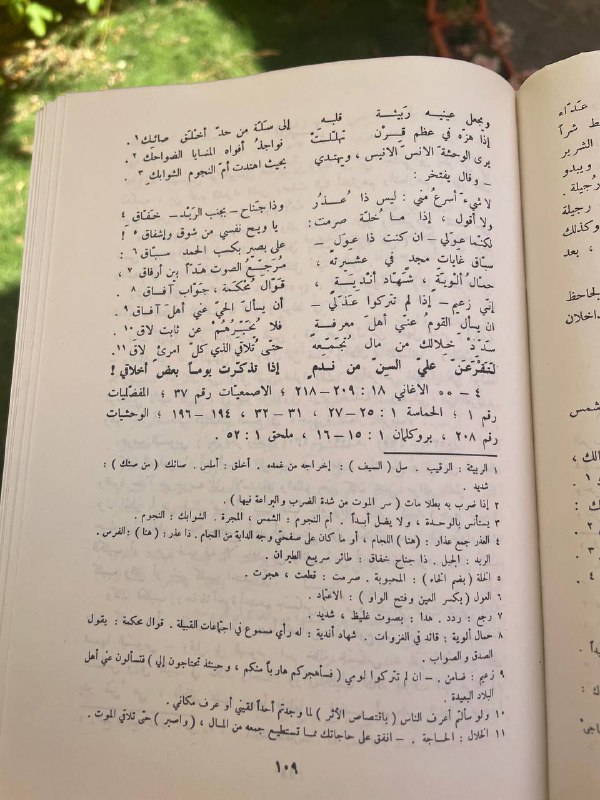 ويجعل عينيه ربيئة قلبه إلى سلّة من حدّ أخلق صائك ١
إذا هزّه في عظم قرن تهللت نواجذ أفواه المنايا الضواحك ٢
يرى الوحشة الانس الانيس ، ويهتدي بحيث اهتدت أمّ النجوم الشوابك ٣
ــ وقال يفتخر :
لا شيء أسرع منّي : ليس ذا عُذر وذا جناح ــ بجنب الرَّيد ــ خفّاق ٤
ولا أقول ، إذا ما خُلّة صرمت : يا ويح نفسي من شوق وإشفاق ٥ !
لكنّما عِوَلي ــ ان كنت ذا عول ــ على بصير بكسب الحمد سبّاق ٦ :
سبّاق غايات مجد في عشيرته ، مُرجّع الصوت هدّاً بين أرفاق ٧ ،
حمّال ألوية ، شهّاد أندية ، قوّال محكمة ، جوّاب آفاق ٨ .
إنّي زعيم ــ إذا لم تتركوا عذلي ــ أن يسأل الحيّ عني أهل آفاق ٩ .
ان يسأل القوم عنّي أهل معرفة فلا يُخبّرهُمْ عن ثابت لاق ١٠ .
سدّد خلالك من مال تُجمّعه حتّى تُلاقي الذي كلّ امرئ لاق ١١ .
لتقرَعَنّ عليّ السِنّ من ندم إذا تذكّرت يوماً بعض أخلاقي !
٤ ــ ** الاغاني ١٨ : ٢٠٩ــ٢١٨ ؛ الاصمعيات رقم ٣٧ ؛ المفضّليات
رقم ١ ؛ الحماسة ١ : ٢٥ــ٢٧ ، ٣١ ــ ٣٢ ، ١٩٤ ــ ١٩٦ ؛ الوحشيات
رقم ٢٠٨ ، بروكلمان ١ : ١٥ــ١٦ ، ملحق ١ : ٥٢ .
١ الربيئة : الرقيب . سل ( السيف ) : إخراجه من غمده . أخلق : أملس . صائك ( من صئك ) :
شديد .
٢ إذا ضرب به بطلا مات ( سر الموت من شدة الضرب والبراعة فيها ) .
٣ يستأنس بالوحدة ، ولا يضل أبداً . أم النجوم : الشمس ، المجرة . الشوابك : النجوم .
٤ العذر جمع عذار : (هنا) اللجام ، أو ما كان على صفحتي وجه الدابة من اللجام . ذا عذر : (هنا) : الفرس .
الريد : الجبل . ذا جناح خفاق : طائر سريع الطيران .
٥ الخلة (بضم الخاء) : المحبوبة . صرمت : قطعت ، هجرت .
٦ العول ( بكسر العين وفتح الواو ) : الاعتماد .
٧ رجع : ردد . هدا : بصوت غليظ ، شديد .
٨ حمال ألوية : قائد في الغزوات . شهاد أندية : له رأي مسموع في اجتماعات القبيلة . قوال محكمة : يقول
الصدق والصواب .
٩ زعيم : ضامن . ــ ان لم تتركوا لومي ( فسأهجركم هارباً منكم ، وحينئذ تحتاجون إلي ) فتسألون عني أهل
البلاد البعيدة .
١٠ ولو سألتم أعرف الناس ( باقتصاص الأثر ) لما وجدتم أحداً لقيني أو عرف مكاني .
١١ الخلال : الحاجة . ــ انفق على حاجاتك مما تستطيع جمعه من المال ، ( واصبر ) حتى تلاقي الموت .
١٠٩